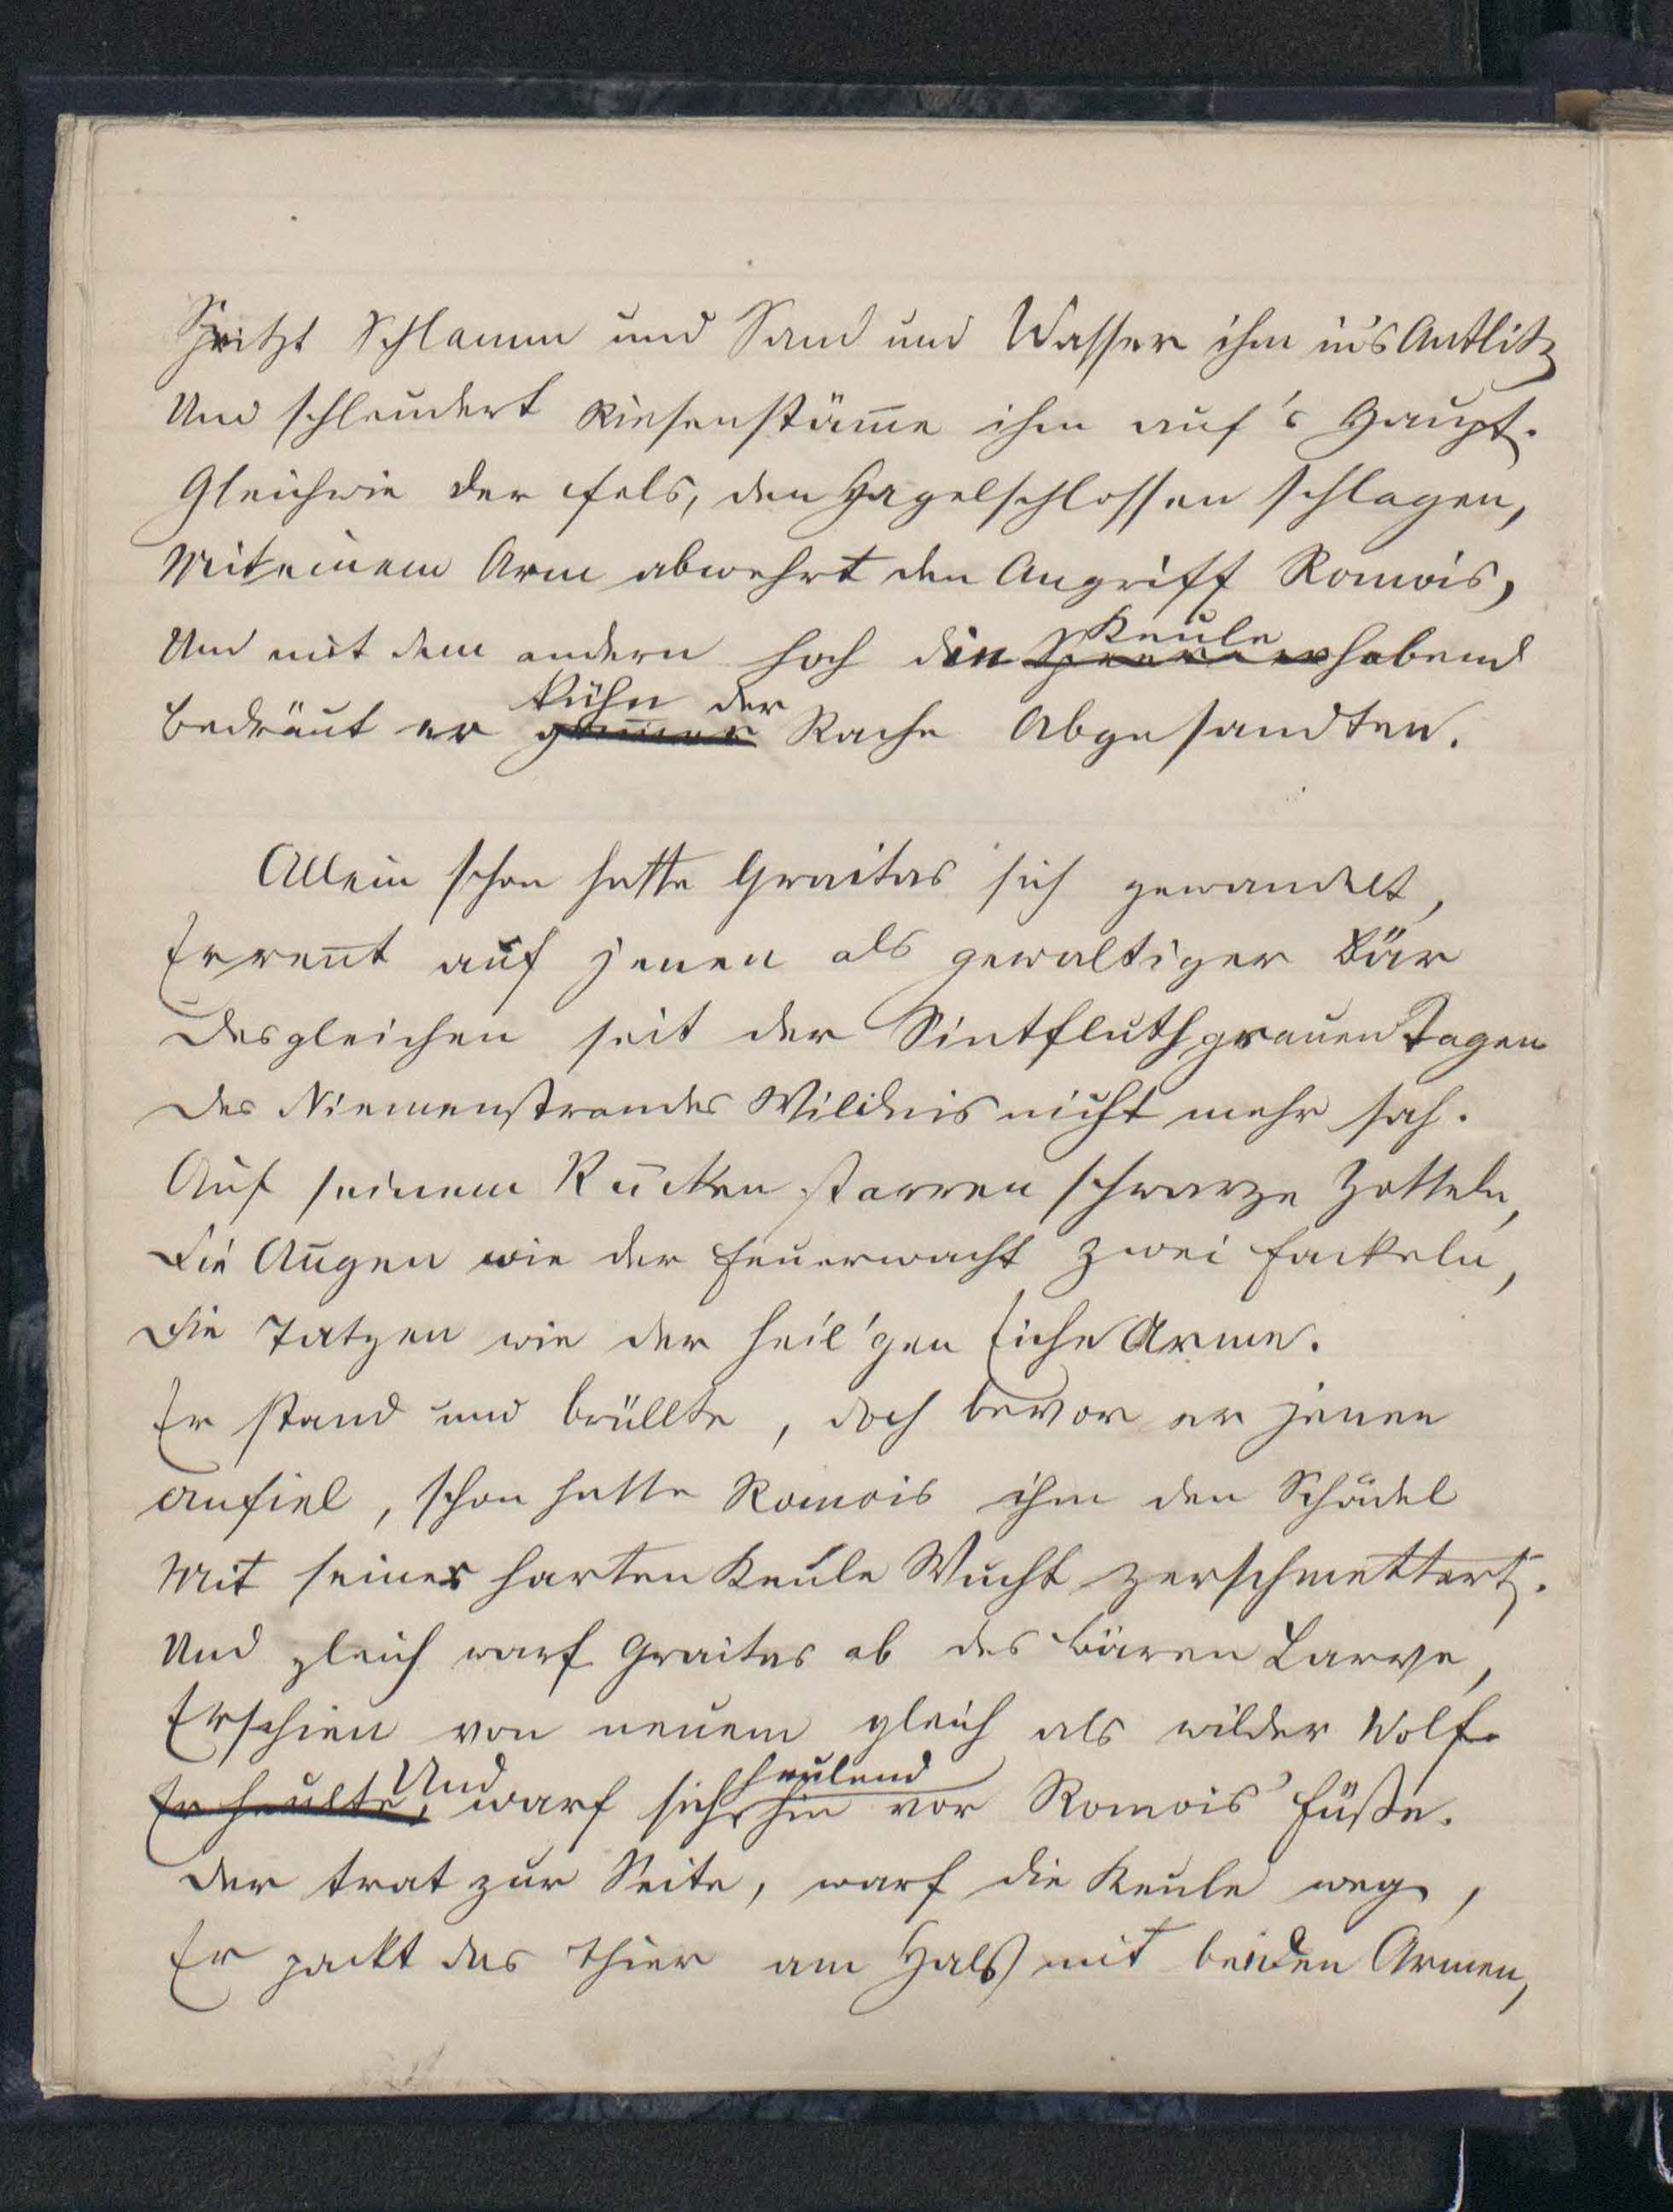 Spritzt Schlamm und Sand und Wasser ihm in's Antlitz
Und schleudert Riesenstäm̅e ihm auf's Haupt.
Gleichwie der Fels, den Hagelschlossen schlagen,
Mit einem Arm abwehrt den Angriff Romois,
Keule
Und mit dem andern hoch die erhebend
kühn der
Bedräut er Rache Abgesandten.
Allein schon hatte Graitas sich gewandelt,
Er ren̅t auf jenen als gewaltiger Bär
Desgleichen seit der Sintfluth grauen Tagen
Des Niemenstrandes Wildnis nicht mehr sah.
Auf seinem Rücken starren schwarze Zotteln,
Die Augen wie der Feuerwacht zwei Fackeln,
Die Tatzen wie der heil'gen Eiche Arme.
Er stand und brüllte, doch bevor er jenen
Anfiel, schon hatte Romois ihm den Schädel
Mit seiner harten Keule Wucht zerschmettert.
Und gleich warf Graitas ab des Bären Larve,
Erschien von neuem gleich als wilder Wolf.
Und heulend
Er heulte, warf sich hin vor Romois' Füße.
Der trat zur Seite, warf die Keule weg,
Er packt das Thier am Hals mit beiden Armen,